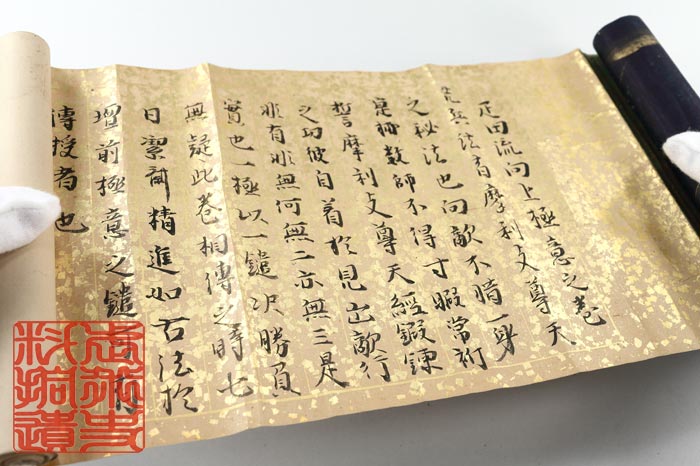 疋田流向上極意之巻
兵法者摩利支尊天
之秘法也向敵不暗一身
数師不得寸暇常祈
誓摩利支尊天経鍛錬
之功彼自着於見出敵行
非有非無何無二亦無三是
實也一極以一鑓决勝負
無疑此巻相傳之時七
日潔斎精進如右法於
増前極意之鑓
傳授者也